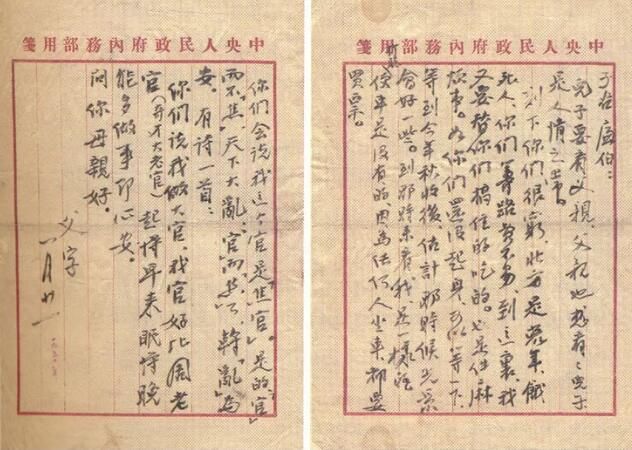 中央人民政府內務部用箋
子谷、廉伯：
兒子要看父親，父親也想看々兒子，
是人情之常。
刻下你們很窮，北方是荒年，餓
死人，你們籌路費不易，到這裏，我
又要替你們搞住的吃的，也是件麻
煩事。如你們還沒起身，可以等一下，
等到今年秋收後，估計那時候光景
會好一些。到那時來看我，是一樣的
便車是沒有的，因為任何人坐車，都要
買票。
中央人民政府內務部用箋
你們会說我这个官是「焦官」。是的，「官」
而不「焦」，天下大亂，「官」而「焦」了，轉「亂」為
安。有詩一首：
你們說我做大官，我官好比周老
官（奇才大老官）起得早來眠得晚
能多做事即心安。
問你母親好。
父字
一月廿一
一九五〇年